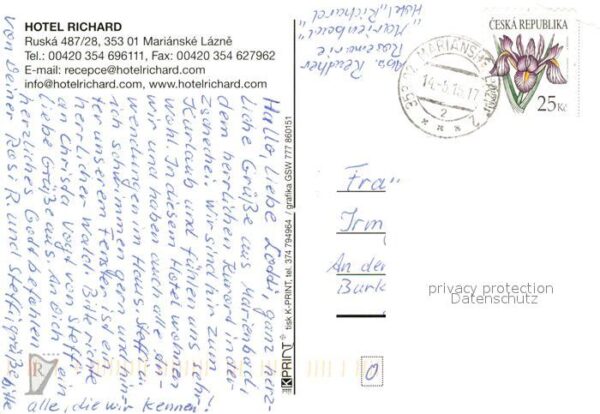 HOTEL RICHARD
Ruská 487/28, 353 01 Mariánské Lázně
Tel.: 00420 354 696111, Fax: 00420 354 627962
E-mail: recepce@hotelrichard.com
info@hotelrichard.com, www.hotelrichard.com
Hallo, liebe Loddi, ganz herz-
liche Grüße aus Marienbad,
dem herrlichen Kurort in der
Tschechei. Wir sind hier zum
Kurlaub und fühlen uns sehr
wohl. In diesem Hotel wohnen
wir und haben auch alle An-
wendungen im Haus. Steffi u.
ich schwimmen gern und
unserem Fenster, ist ein
herrlicher Wald. Bitte richte
an Christa Vogt von Steffi ein
liebe Grüße aus. An Dich
herzliches Gott befohlen
von Deiner Rosi R. und Steffi, grüße bitte
alle, die wir kennen!
K-PRINT tisk K-PRINT, tel. 374 794964 / grafika GSW 777 860151
Abs. Reudher
Rosemarie
"Marienbad"
Hotel "Richard"
ČESKÁ REPUBLIKA
25 Kč
MARIÁNSKÉ LÁZNĚ
2
Frau
Irm
An der
Burk
privacy protection
Datenschutz
R